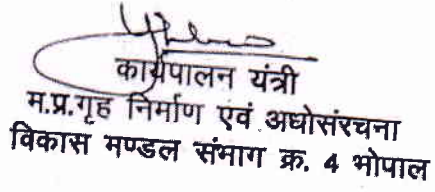 कार्यपालन यंत्री
म.प्र.गृह निर्माण एवं अधोसंरचना
विकास मण्डल संभाग क्र. 4 भोपाल